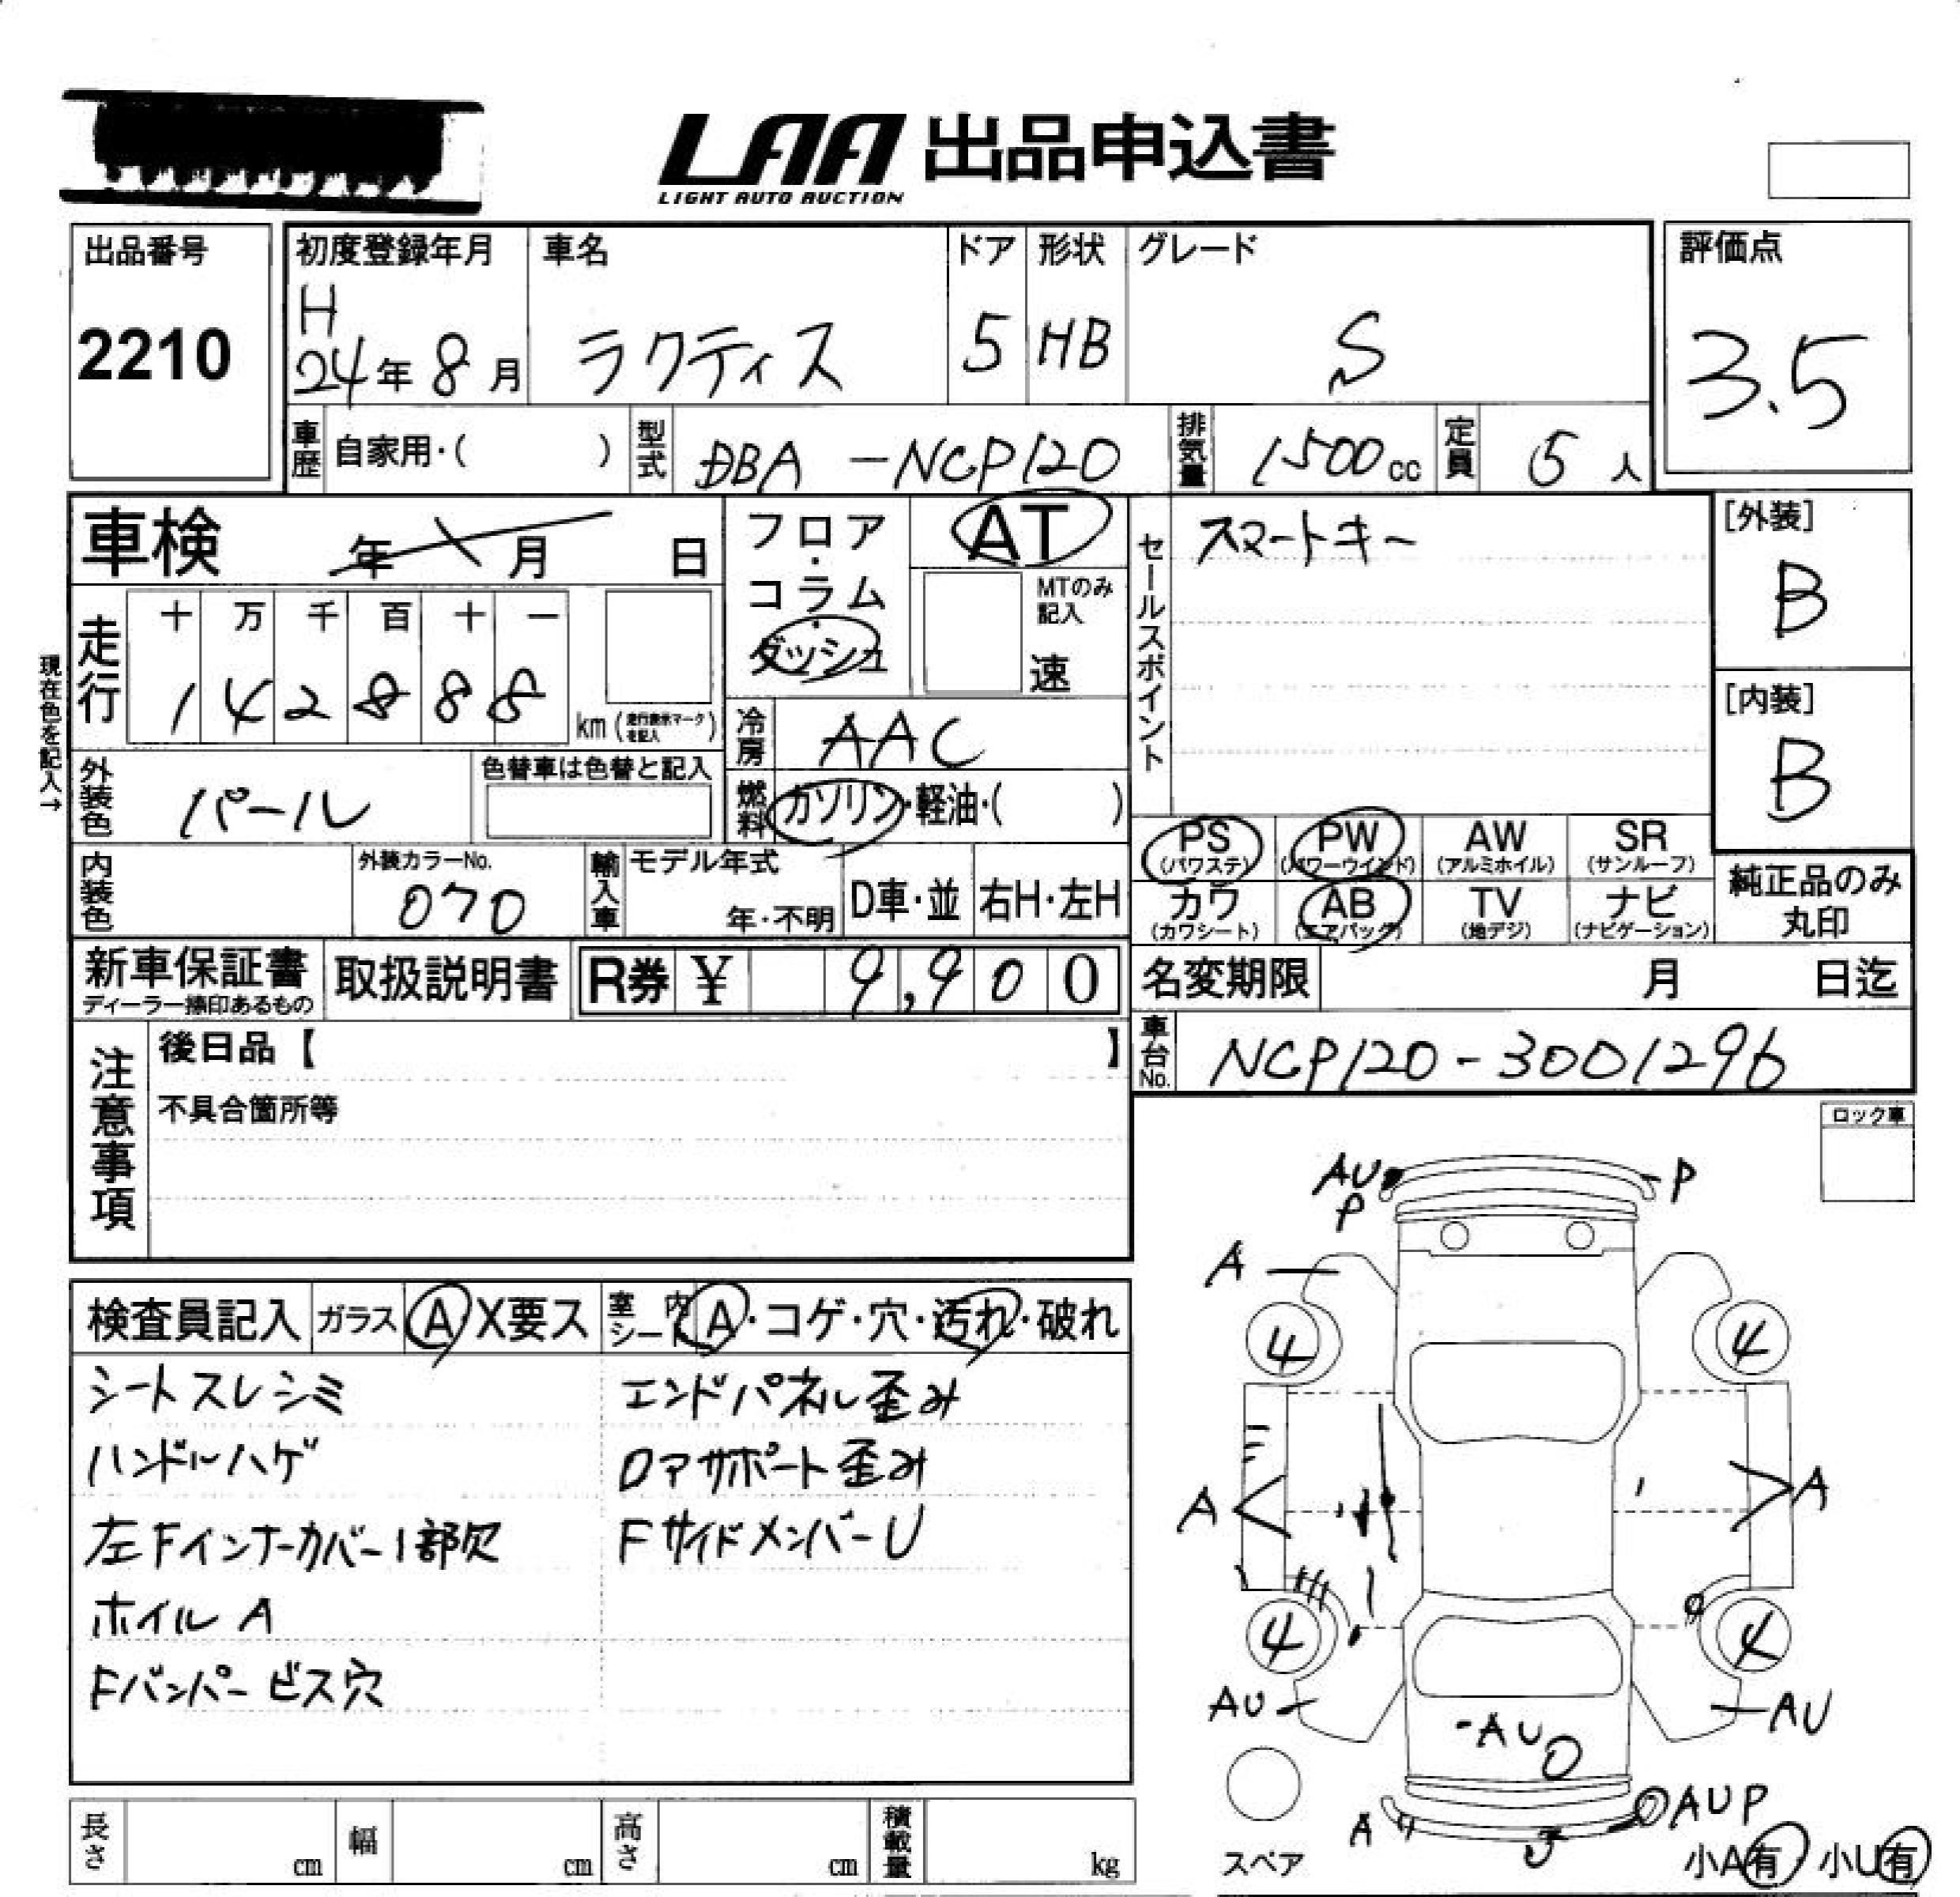 LAA 出品申込書
LIGHT AUTO AUCTION
出品番号
2210
初度登録年月 車名 ドア 形状 グレード
H
24年 8月 ラクティス 5 HB S
評価点
3.5
車歴 自家用・( ) 型式 DBA-NCP120 排気量 1500cc 定員 5人
車検 年 月 日
フロア・コラム・ダッシュ
AT
MTのみ記入
速
セールスポイント スマートキー
[外装]
B
[内装]
B
現在色を記入→
走行 十 万 千 百 十 一
1 4 2 8 8 8 km (走行表示マークを記入)
冷房 AAC
外装色 パール 色替車は色替と記入
燃料 ガソリン・軽油・( )
PS (パワステ) PW (パワーウインド) AW (アルミホイル) SR (サンルーフ)
カワ (カワシート) AB (エアバッグ) TV (地デジ) ナビ (ナビゲーション)
純正品のみ丸印
内装色 外装カラーNo. 070 輸入車 モデル年式 年・不明 D車・並 右H・左H
新車保証書 取扱説明書 R券 ¥ 9,900
ディーラー捺印あるもの
名変期限 月 日迄
車台No. NCP120-3001296
注意事項 後日品【 】
不具合箇所等
ロック車
検査員記入 ガラス A X要ス 室内シート A・コゲ・穴・汚れ・破れ
シートスレシミ エンドパネル歪み
ハンドルハゲ ロアサポート歪み
左Fインナーカバー1部欠 FサイドメンバーU
ホイルA
Fバンパービス穴
AU P
P
A
4 4
A A
4 4
AU AU
AU
AUP
A
スペア 小A有 小U有
長さ cm 幅 cm 高さ cm 積載量 kg